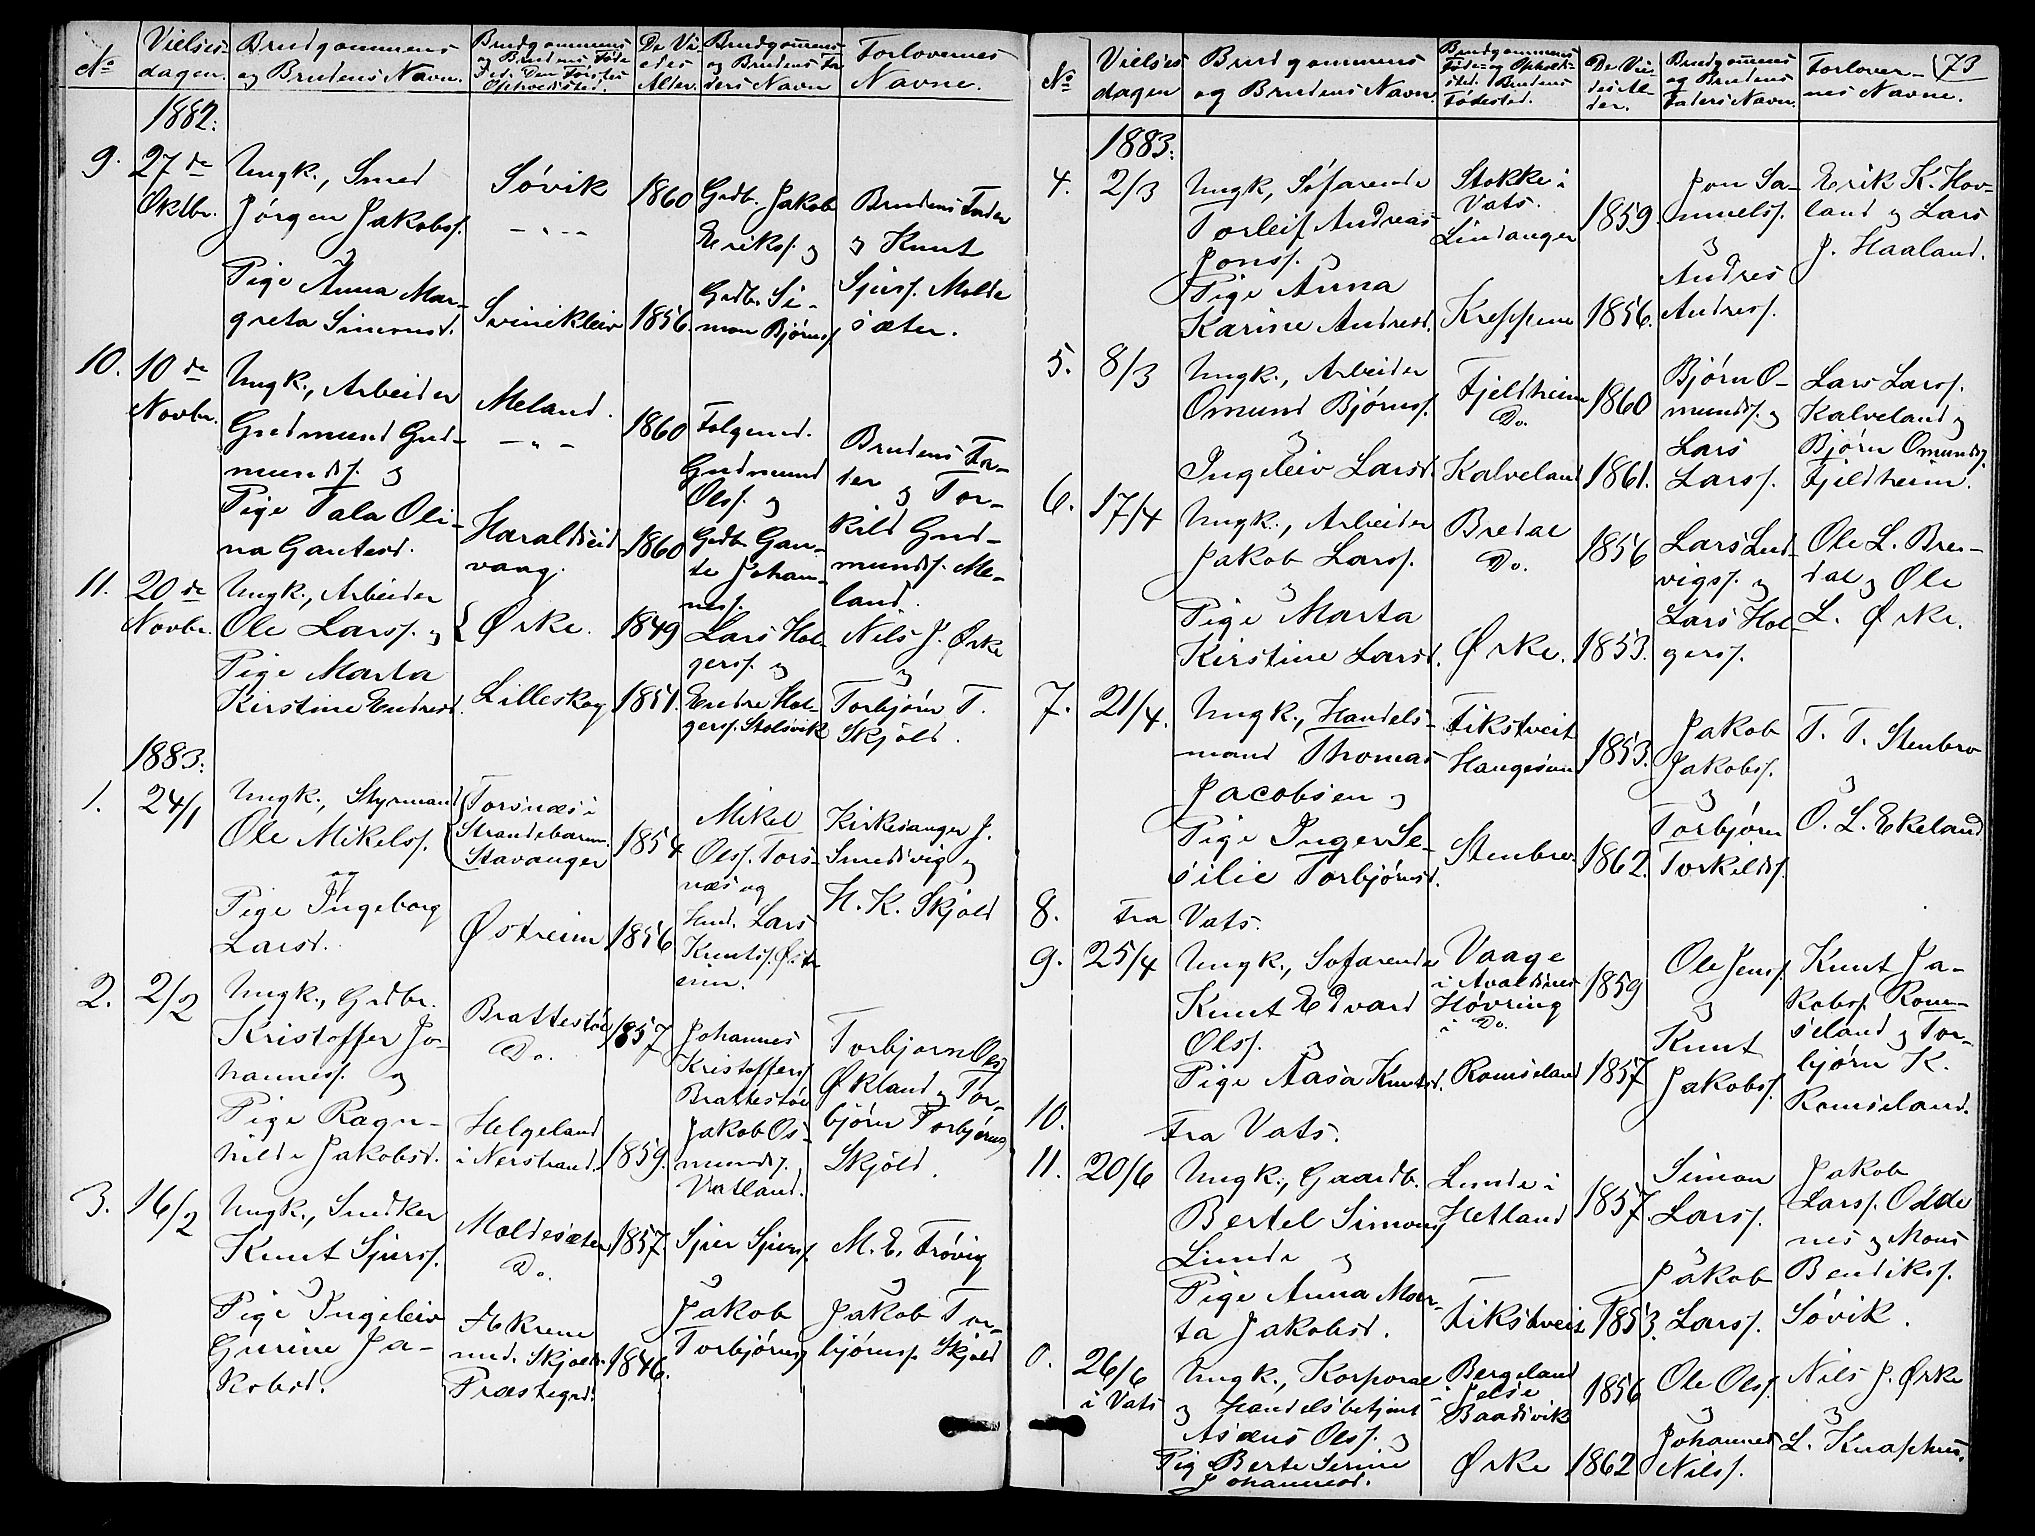 No
Vielses-
dagen.
Brudgommens
og Brudens Navn.
Brudgommens
og Brudens Føde
Sted. Den Førstes
Opholdssted.
De Vi-
edes
Alder.
Brudgommens
og Brudens Fa
ders Navn
Forlovernes
Navne.
1882.
9. 27 de
Oktbr.
Ungk., Smed
Jørgen Jakobs.
og
Pige Anna Mar-
greta Simonsd.
Søvik
- " -
Svinekleiv
1860
1856.
Grdb. Jakob
Eriks. og
Grdb. Si-
mon Bjørns.
Brudens Fader
og Knut
Sjurs. Molde
sæter.
10. 10 de
Novbr.
Ungk., Arbeider
Gudmund Gud-
munds. og
Pige Tala Oli-
na Gautesd.
Meland.
- " -
Haraldseid
vaag.
1860
1860
Følgemd.
Gudmund
Ols. og
Grdb. Gau-
te Johan-
nes.
Brudens Fa-
der og Tor-
kild Gud-
munds. Me-
land.
11. 20 de
Novbr.
Ungk., Arbeider
Ole Lars. og
Pige Marta
Kirstine Endresd.
Ørke.
Lilleskog
1849
1851.
Lars Hol-
gers. og
Endre Hol-
gers. Stolsvik
Nils J. Ørke
og
Torbjørn T.
Skjold.
1883.
1. 24/1
Ungk., Styrmand
Ole Mikels.
og
Pige Ingeborg
Larsd.
Torsnæs i
Strandebarm.
Stavanger
Østreim
1854
1856
Mikel
Ols. Tors-
næs og
Hmd. Lars
Knuts. Østr
eim.
Kirkesanger J.
Smedsvig og
H. K. Skjold
2. 2/2
Ungk., Grdbr.
Kristoffer Jo-
hannes. og
Pige Ragn-
hilda Jakobsd.
Brattestøe
Do.
Helgeland
i Nerstrand.
1857
1859.
Johannes
Kristoffers.
Brattestøe
Jakob Os-
munds.
Vatland.
Torbjørn Ols.
Økland og Tor-
bjørn Torbjørns.
Skjold.
3. 16/2
Ungk., Snedker
Knut Sjurs.
og
Pige Ingeleiv
Gurine Ja-
kobsd.
Moldesæter
Do.
Aakrene
und. Skjolds
Præstegrd.
1857.
1846.
Sjur Sjurs.
og
Jakob
Torbjørns.
M. E. Frøvig
og
Jakob Tor-
bjørns. Skjold
No
Vielses
dagen
Brudgommens
og Brudens Navn.
Brudgommens
Føde- og Opholds-
sted. Brudens
Fødested.
De Vie-
des Al-
der.
Brudgommens
og Brudens
Faders Navn.
Forlover-
nes Navne.
73
1883.
4. 2/3
Ungk., Søfarende
Torleif Andreas
Jons. og
Pige Anna
Karine Andresd.
Stokke i
Vats.
Lindanger
Kreppene
1859.
1856.
Jon Sa-
muels.
og
Andres
Andres.
Erik K. Hov-
land og Lars
J. Haaland.
5. 8/3
Ungk., Arbeider
Omund Bjørns.
og
Ingeleiv Larsd.
Fjeldheim
Do.
Kalveland
1860
1861.
Bjørn O-
munds. og
Lars
Lars.
Lars Lars.
Kalveland og
Bjørn Omunds.
Fjeldheim.
6. 17/4
Ungk., Arbeider
Jakob Lars.
og
Pige Marta
Kirstine Larsd.
Bredal
Do.
Ørke.
1856
1853.
Lars Lud-
vigs. og
Lars Hol-
gers.
Ole L. Bre-
dal og Ole
L. Ørke.
7. 21/4.
Ungk., Handels-
mand Thomas
Jacobsen og
Pige Inger Se-
silie Torbjørnsd.
Fikstveit
Haugesund
Stenbro.
1853.
1862.
Jakob
Jakobs.
og
Torbjørn
Torkilds.
T. T. Stenbro
og
O. L. Ekeland
8. Fra Vats.
9. 25/4
Ungk., Søfarende
Knut Edvard
Ols. og
Pige Aasa Knutsd.
Vaage
i Avaldsnes
Høvring
i Do.
Romseland
1859
1857
Ole Jens.
og
Knut
Jakobs.
Knut Ja-
kobs. Rom-
seland og Tor-
bjørn K.
Romseland.
10. Fra Vats.
11. 20/6
Ungk., Gaardb.
Bertel Simons.
Lunde og
Pige Anna Mar-
ta Jakobsd.
Lunde i
Hetland
Fikstveit
1857.
1853.
Simon
Lars.
og
Jakob
Lars.
Jakob
Lars. Odde
nes og Mons
Bendiks.
Søvik.
0. 26/6
i Vats
Ungk., Korporal
og Handelsbetjent
Asæus Ols. og
Pig Berte Serine
Johannesd.
Bergeland
i Jelse
Baadsvik
Ørke
1856
1862
Ole Ols.
og
Johannes
Nils.
Nils J. Ørke
og
L. Knaphus.